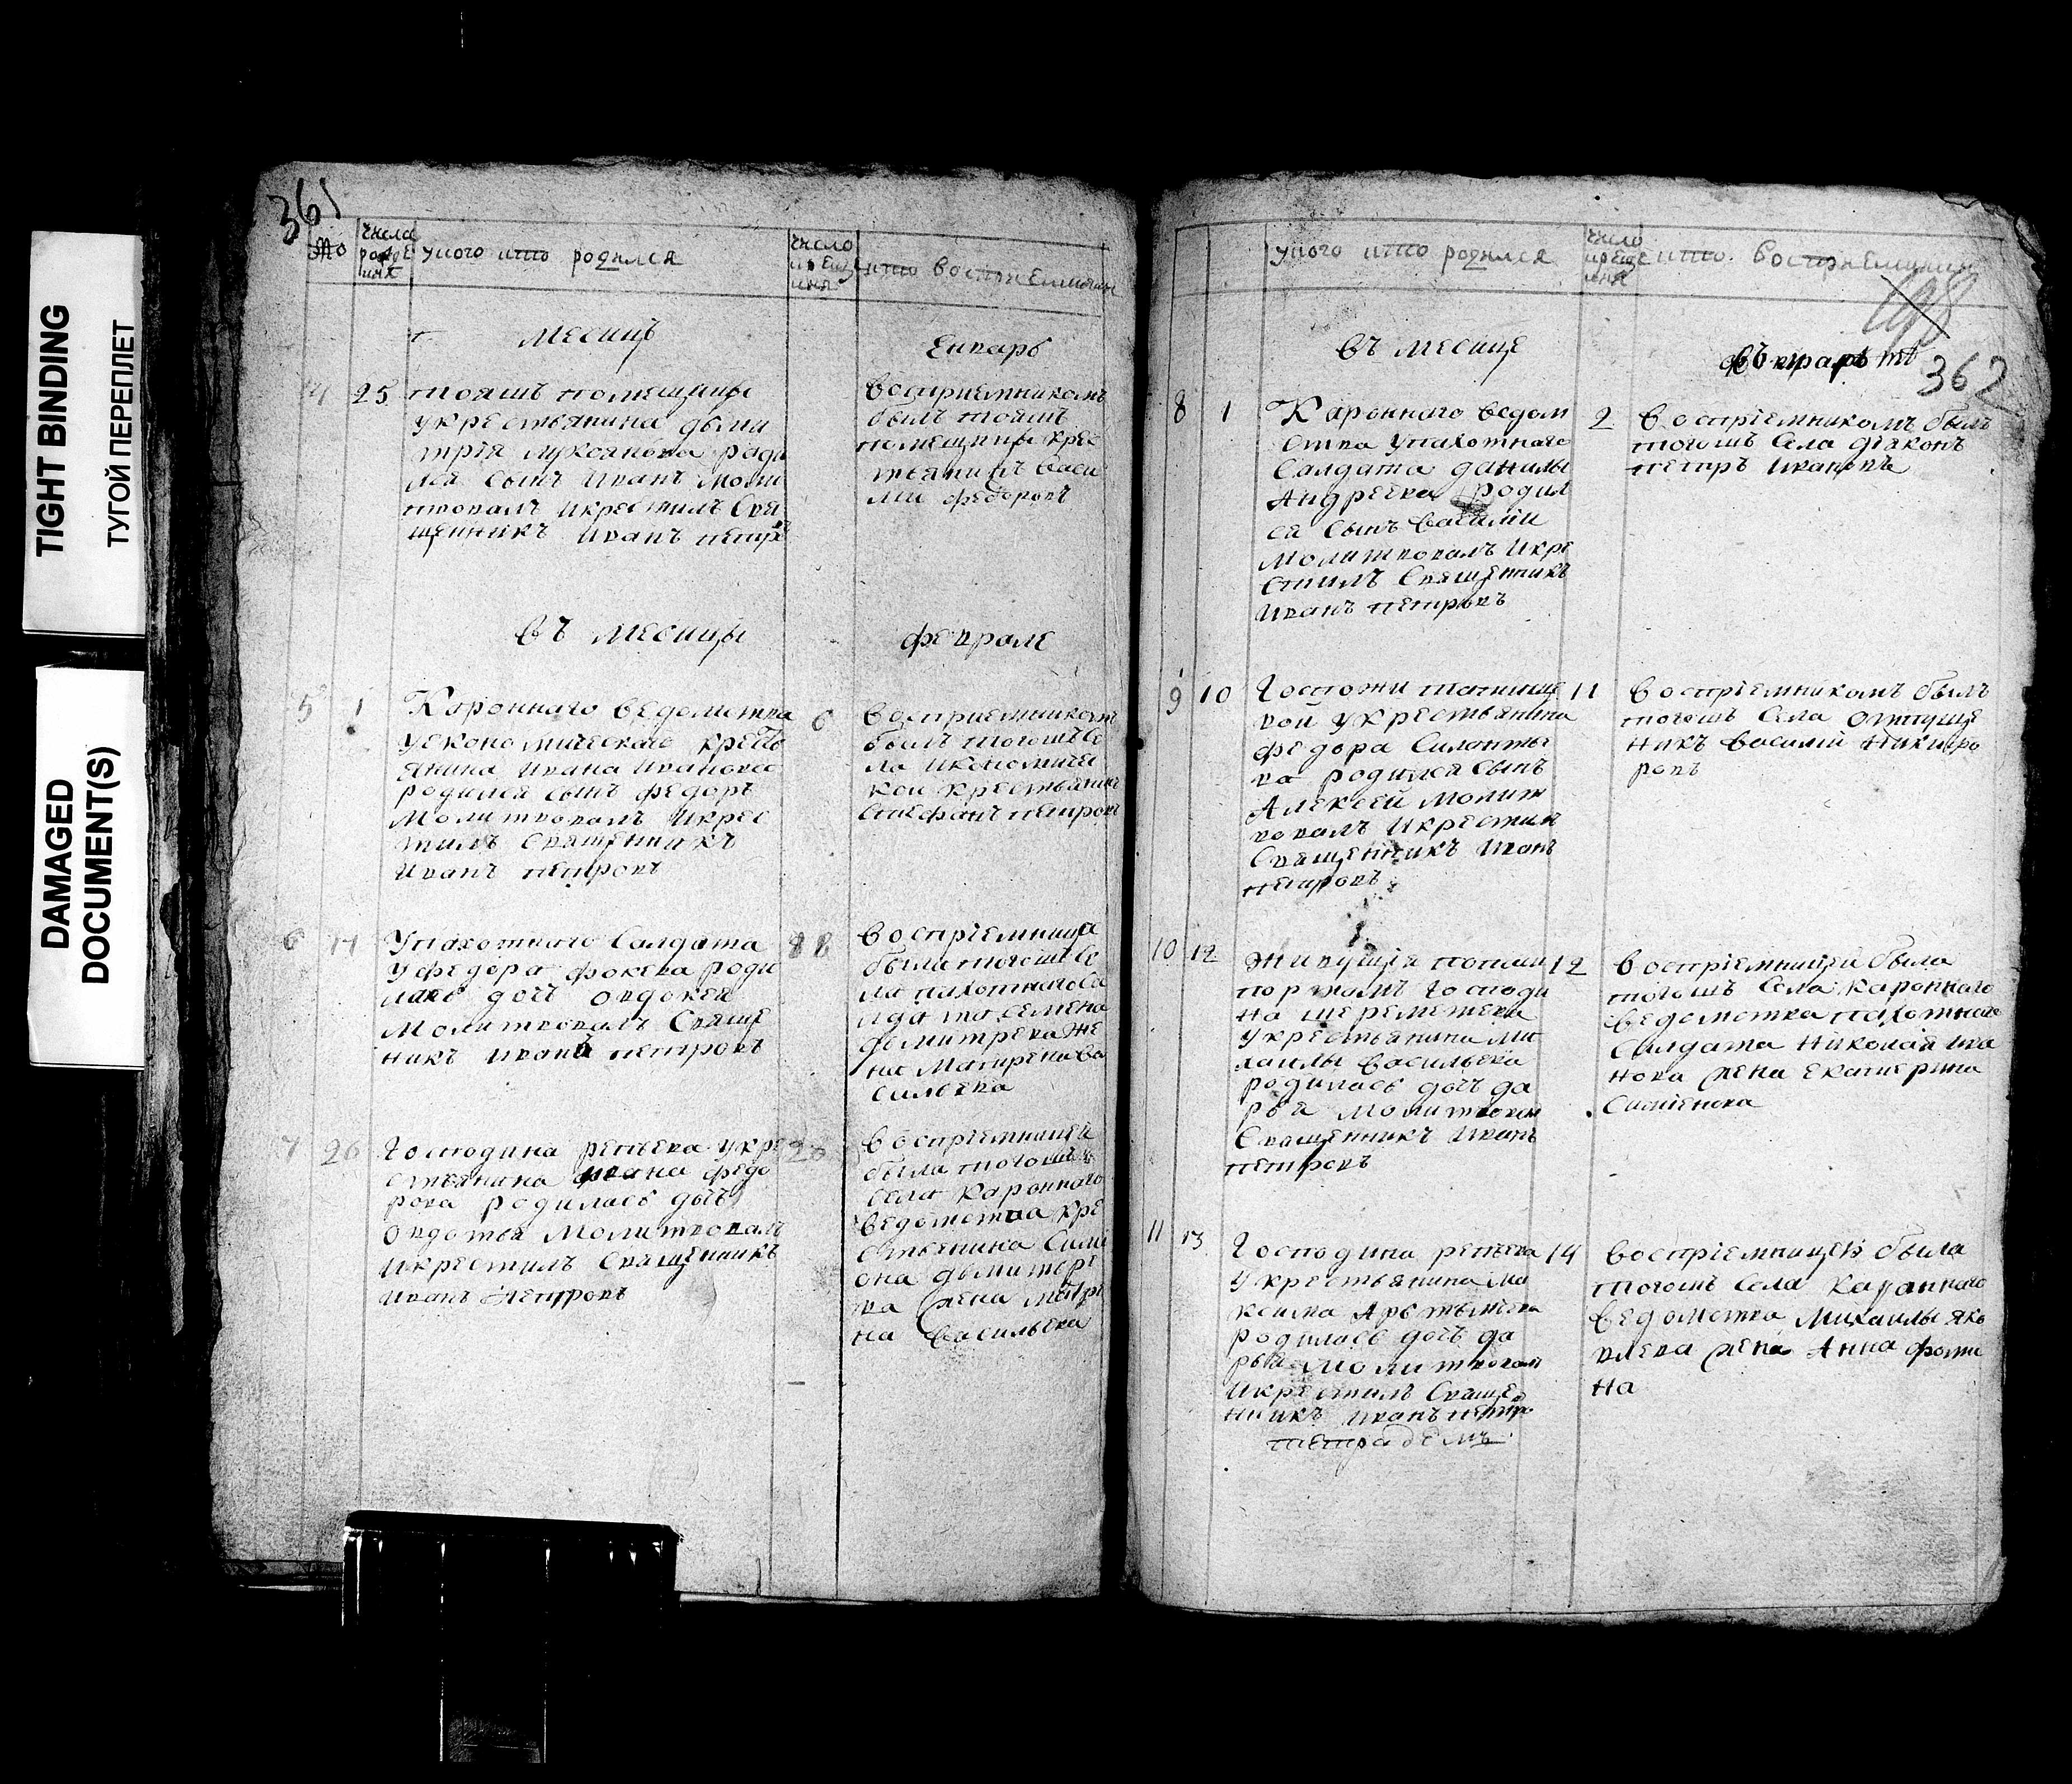 TIGHT BINDING
ТУГОЙ ПЕРЕПЛЕТ
DAMAGED
DOCUMENT(S)
361
№
числа рожде ния
у кого кто родился
число креще ния
кто восприемники
Месяцъ
Енварь
4 25
тояшъ помещицы
укрестьянина дьми
трия лукоянова роди
лся сынъ Иванъ моли
твовалъ икрестилъ Свя
щенникъ иванъ петро
восприемникомъ
былъ тояшъ
помещицы крес
тьянинъ васи
лии федоровъ
въ месяцы
феврале
5 1
Кароннаго ведомства
уекономическаго кресть
янина ивана иванова
родился сынъ федоръ
молитвовалъ икрес
тилъ Священникъ
иванъ петровъ
6
восприемникомъ
былъ тогошъ се
ла икономиче
кои крестьянинъ
стефанъ петровъ
6
Упахотнаго Салдата
уфедора фокева роди
лась дочь овдокея
Молитвовалъ Свяще
никъ иванъ петровъ
восприемница
была тогошъ се
ла пахотнаго са
лдата семена
дьмитрева же
на Матрена ва
сильева
7 26
Господина репьева укре
стьянина ивана федо
рова родилась дочь
Овдотья Молитвовалъ
икрестилъ Священникъ
иванъ петровъ
восприемницей
была тогошъ
села кароннаго
ведомства кре
стьянина Сими
она дьмитре
ва жена матре
на васильева
у кого кто родился
число креще ния
кто восприемники
198
362
въ месяце
8 1
Кароннаго ведом
ства упахотнаго
Салдата данилы
Андреева родил
ся сынъ василии
Молитвовалъ икре
стилъ Священникъ
иванъ петровъ
2
восприемникомъ былъ
тогошъ села дияконъ
петръ ивановъ
9 10
Госпожи
вой укрестьянина
федора Силанть
ва родился сынъ
Алексей молит
вовалъ икрестил
Священникъ иванъ
петровъ
11
восприемникомъ былъ
тогошъ села отпуще
никъ василий никифо
ровъ
10 12
Живущия попаш
портамъ Господи
на шереметева
укрестьянина ми
хаилы васильева
родилась дочь да
рья молитвовал
Священникъ иванъ
петровъ
12
восприемницей была
тогошъ села каронного
ведомства пахотнаго
Салдата Николая ива
нова жена екатерина
Симиенова
11 13
Господина репьева
укрестьянина ма
ксима Арьтьмева
родилась дочь да
рья молитвовал
икрестилъ Свяще
нникъ иванъ петро
14
восприемницей была
тогошъ села каронного
ведомства Михаилы яко
влева жена Анна фоми
на